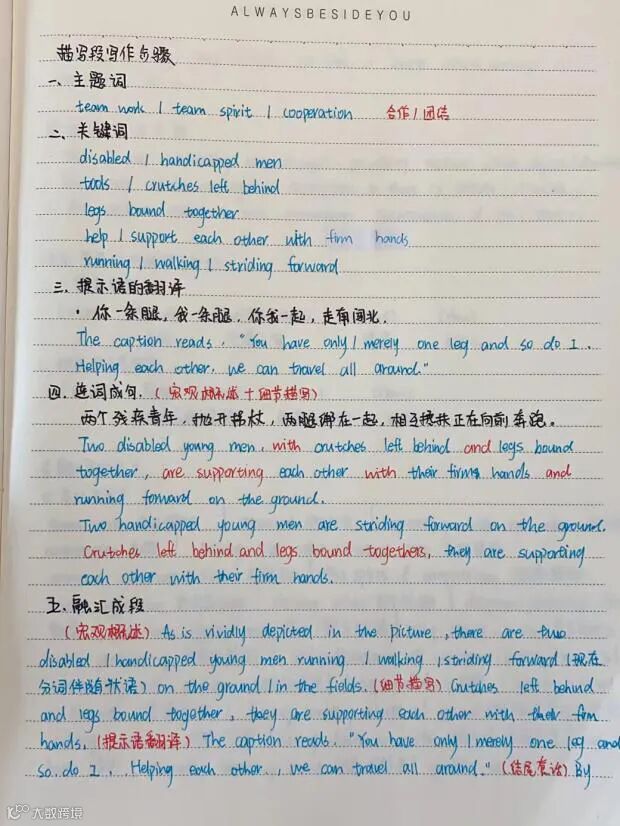 ALWAYSBESIDEYOU
描写段写作步骤
一、主题词
team work / team spirit / cooperation 合作/团结
二、关键词
disabled / handicapped men
tools / crutches left behind
legs bound together
help / support each other with firm hands
running / walking / striding forward
三、提示语的翻译
· 你一条腿，我一条腿，你我一起，走南闯北。
The caption reads, "You have only / merely one leg and so do I.
Helping each other, we can travel all around."
四、连词成句.（宏观概述+细节描写）
两个残疾青年，抛开拐杖，两腿绑在一起，相互搀扶正在向前奔跑。
Two disabled young men, with crutches left behind and legs bound
together, are supporting each other with their firms hands and
running forward on the ground.
Two handicapped young men are striding forward on the ground.
Crutches left behind and legs bound togethers, they are supporting
each other with their firm hands.
五.融汇成段
（宏观概述）As is vividly depicted in the picture, there are two
disabled / handicapped young men running / walking / striding forward（现在
分词伴随状语）on the ground / in the fields.（细节描写）Crutches left behind
and legs bound together, they are supporting each other with their firm
hands.（提示语翻译）The caption reads. "You have only / merely one leg and
so do I. Helping each other, we can travel all around."（结尾套话）By
大数跨境